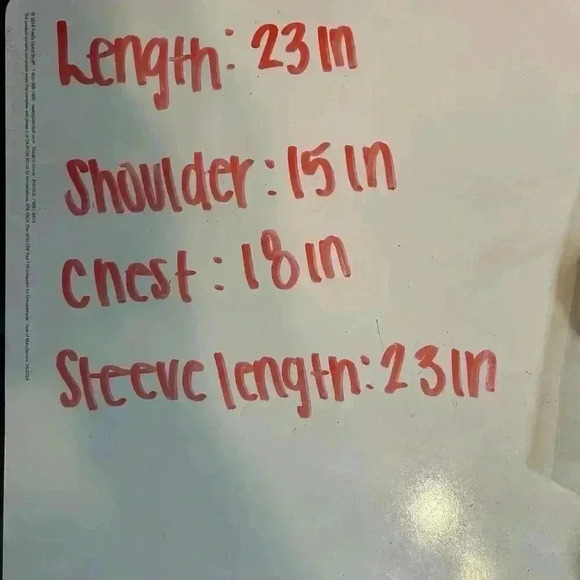 Length: 23in
Shoulder: 15in
Chest: 18in
Sleeve length: 23in